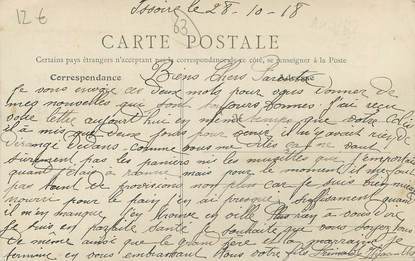 12 €
63
Issoire le 28-10-18
CARTE POSTALE
Certains pays étrangers n'acceptant pas la correspondance de ce côté, se renseigner à la Poste
Correspondance
Adresse
Biens chers Parents
Je vous envoie ces deux mots pour vous donner de
mes nouvelles qui sont toujours bonnes. J'ai reçu
votre lettre aujourd'hui en même temps que votre colis
il a mis que deux jours pour venir, il n'y avait rien de
dérangé dedans comme vous me dites ça ne vaut
surement pas les paniers ni les musettes que j'emportais
quand j'étais à mais pour le moment il me faut
pas tant de provisions non plus car je suis bien mieux
nourri pour le pain j'en ai presque suffisament quand
il m'en manque j'en trouve en ville. Plus rien a vous dire
Je suis en parfaite santé je souhaite que vous soyez tous
de même ainsi que le grand père et la marraine je
termine en vous embrassant tous votre fils